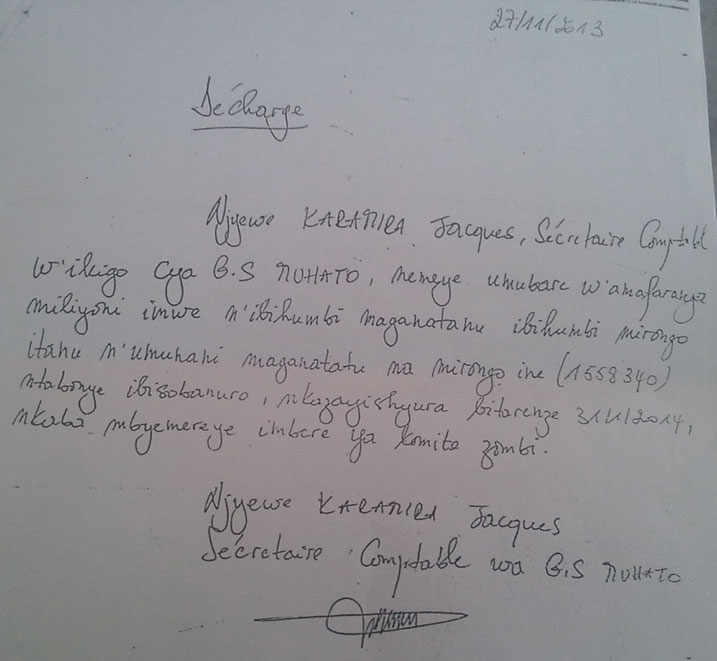 27/11/2013
Décharge
Njyewe KARAMIRA Jacques, Sécretaire Comptabl
w'ikigo cya G.S MUHATO, nemeye umubare w'amafaranga
miliyoni imwe n'ibihumbi maganatanu ibihumbi mirongo
itanu n'umunani maganatatu na mirongo ine (1558340)
ntabonye ibisobanuro, nkazayishyura bitarenze 31/1/2014,
nkaba mbyemereye imbere ya komite zombi.
Njyewe KARAMIRA Jacques
Sécretaire Comptable wa G.S MUHATO